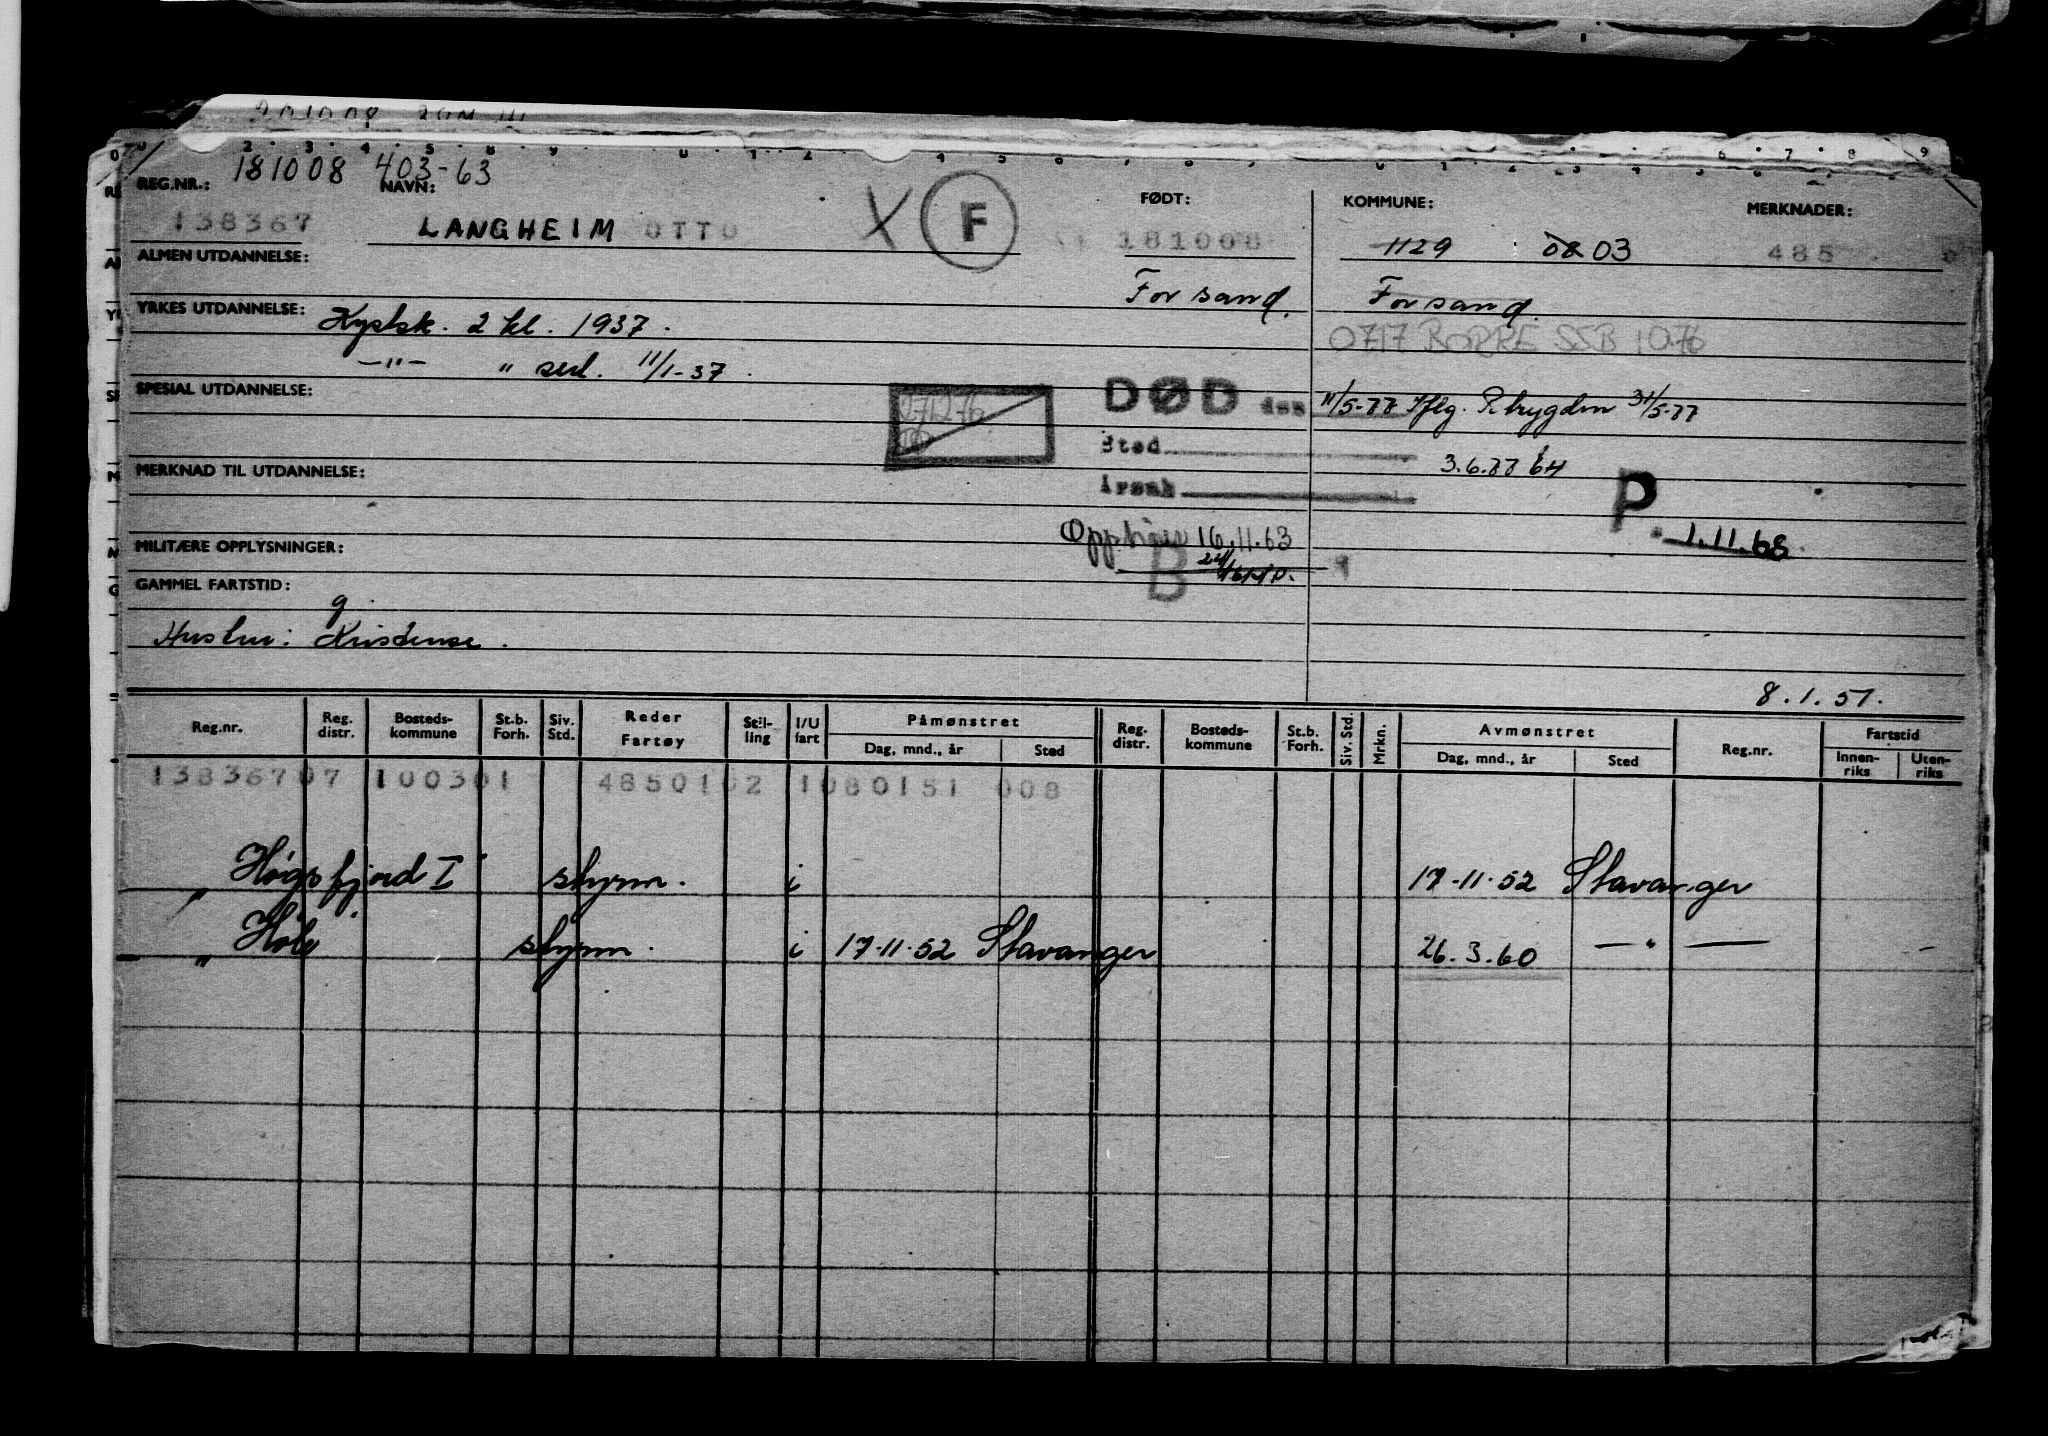 181008 403-63
REG.NR.: NAVN: FØDT: KOMMUNE: MERKNADER:
138367 LANGHEIM OTTO X F 181008 1129 08 03 485
ALMEN UTDANNELSE: Forsand. Forsand.
YRKES UTDANNELSE: Kystsk. 2 kl. 1937.
0717 BORRE SSB 1076
—"— " serl. 11/1-37.
SPESIAL UTDANNELSE:
DØD den 11/5-77 Iflg. R.trygden 31/5-77
071276
Sted
3.6.77
MERKNAD TIL UTDANNELSE:
Årsak
P. 1.11.68
Opphører 16.11.63
MILITÆRE OPPLYSNINGER:
B
GAMMEL FARTSTID:
g
Hustru: Kristense.
8.1.51.
Reg.nr. Reg. distr. Bosteds-kommune St.b. Forh. Siv. Std. Reder Fartøy Stil-ling I/U fart Påmønstret Dag, mnd., år Sted Reg. distr. Bosteds-kommune St.b. Forh. Siv. Std. Mrkn. Avmønstret Dag, mnd., år Sted Reg.nr. Fartstid Innen-riks Uten-riks
138367 07 100301 4850102 1080151 008
" Høgsfjord I styrm. i 17-11-52 Stavanger
" Høle styrm. i 17-11-52 Stavanger 26.3.60 — " —